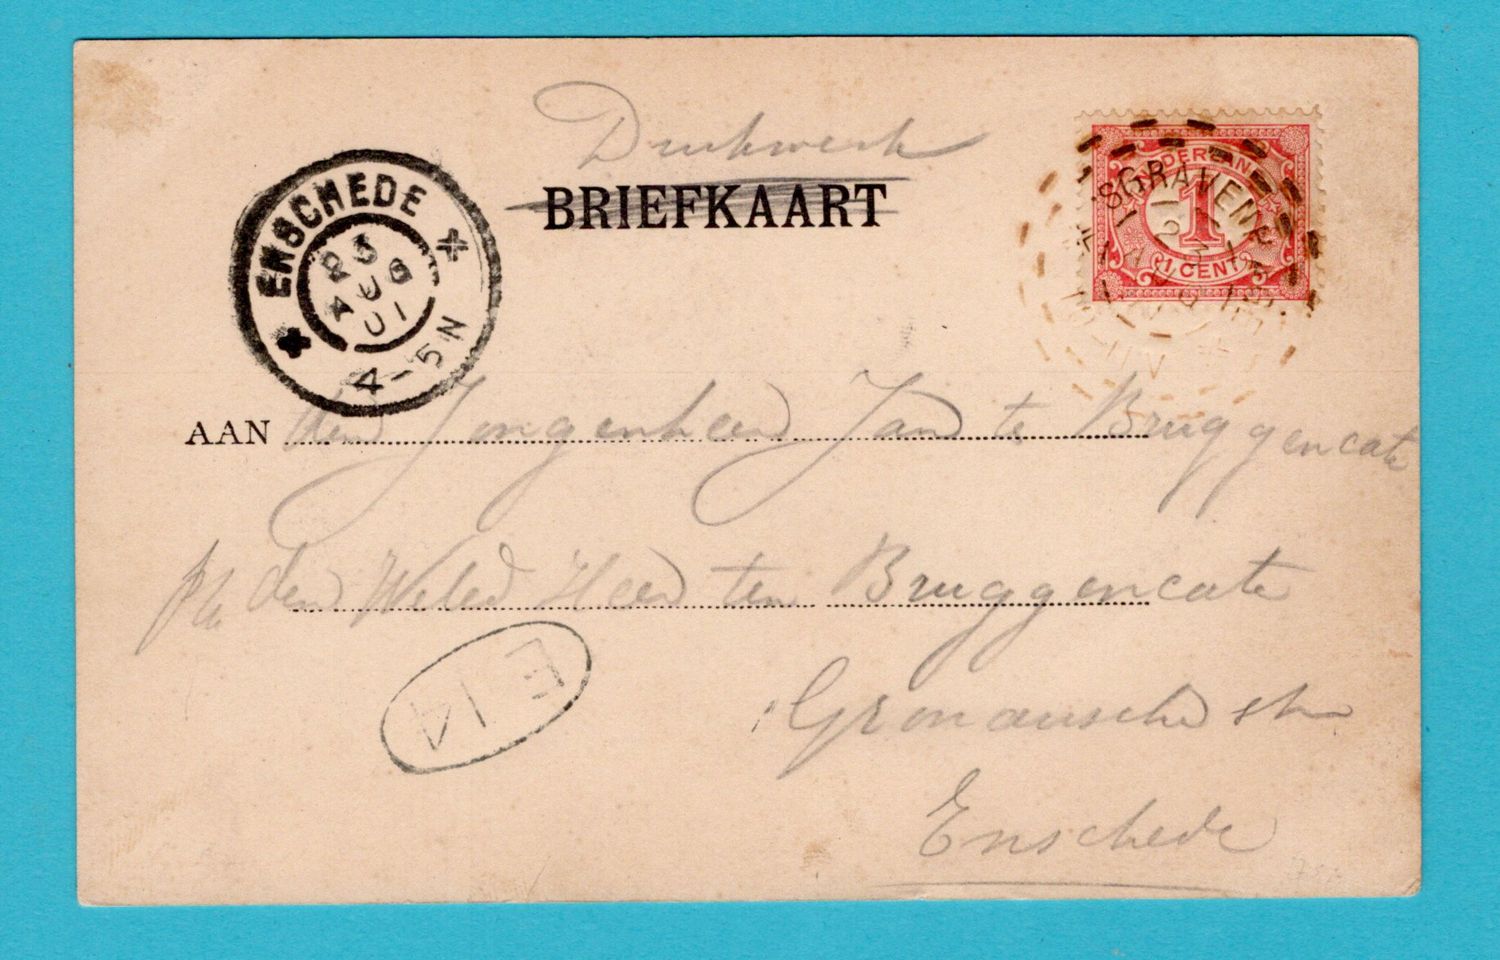 Drukwerk
BRIEFKAART
ENSCHEDE
23
AUG
01
4-5N
NEDERLAND
1
1 CENT
'SGRAVENH
12-1
23
AUG
AAN den Jongenheer Jan te Bruggencate
den WelEd Heer ten Bruggencate
E 14
Gronausche str
Enschede